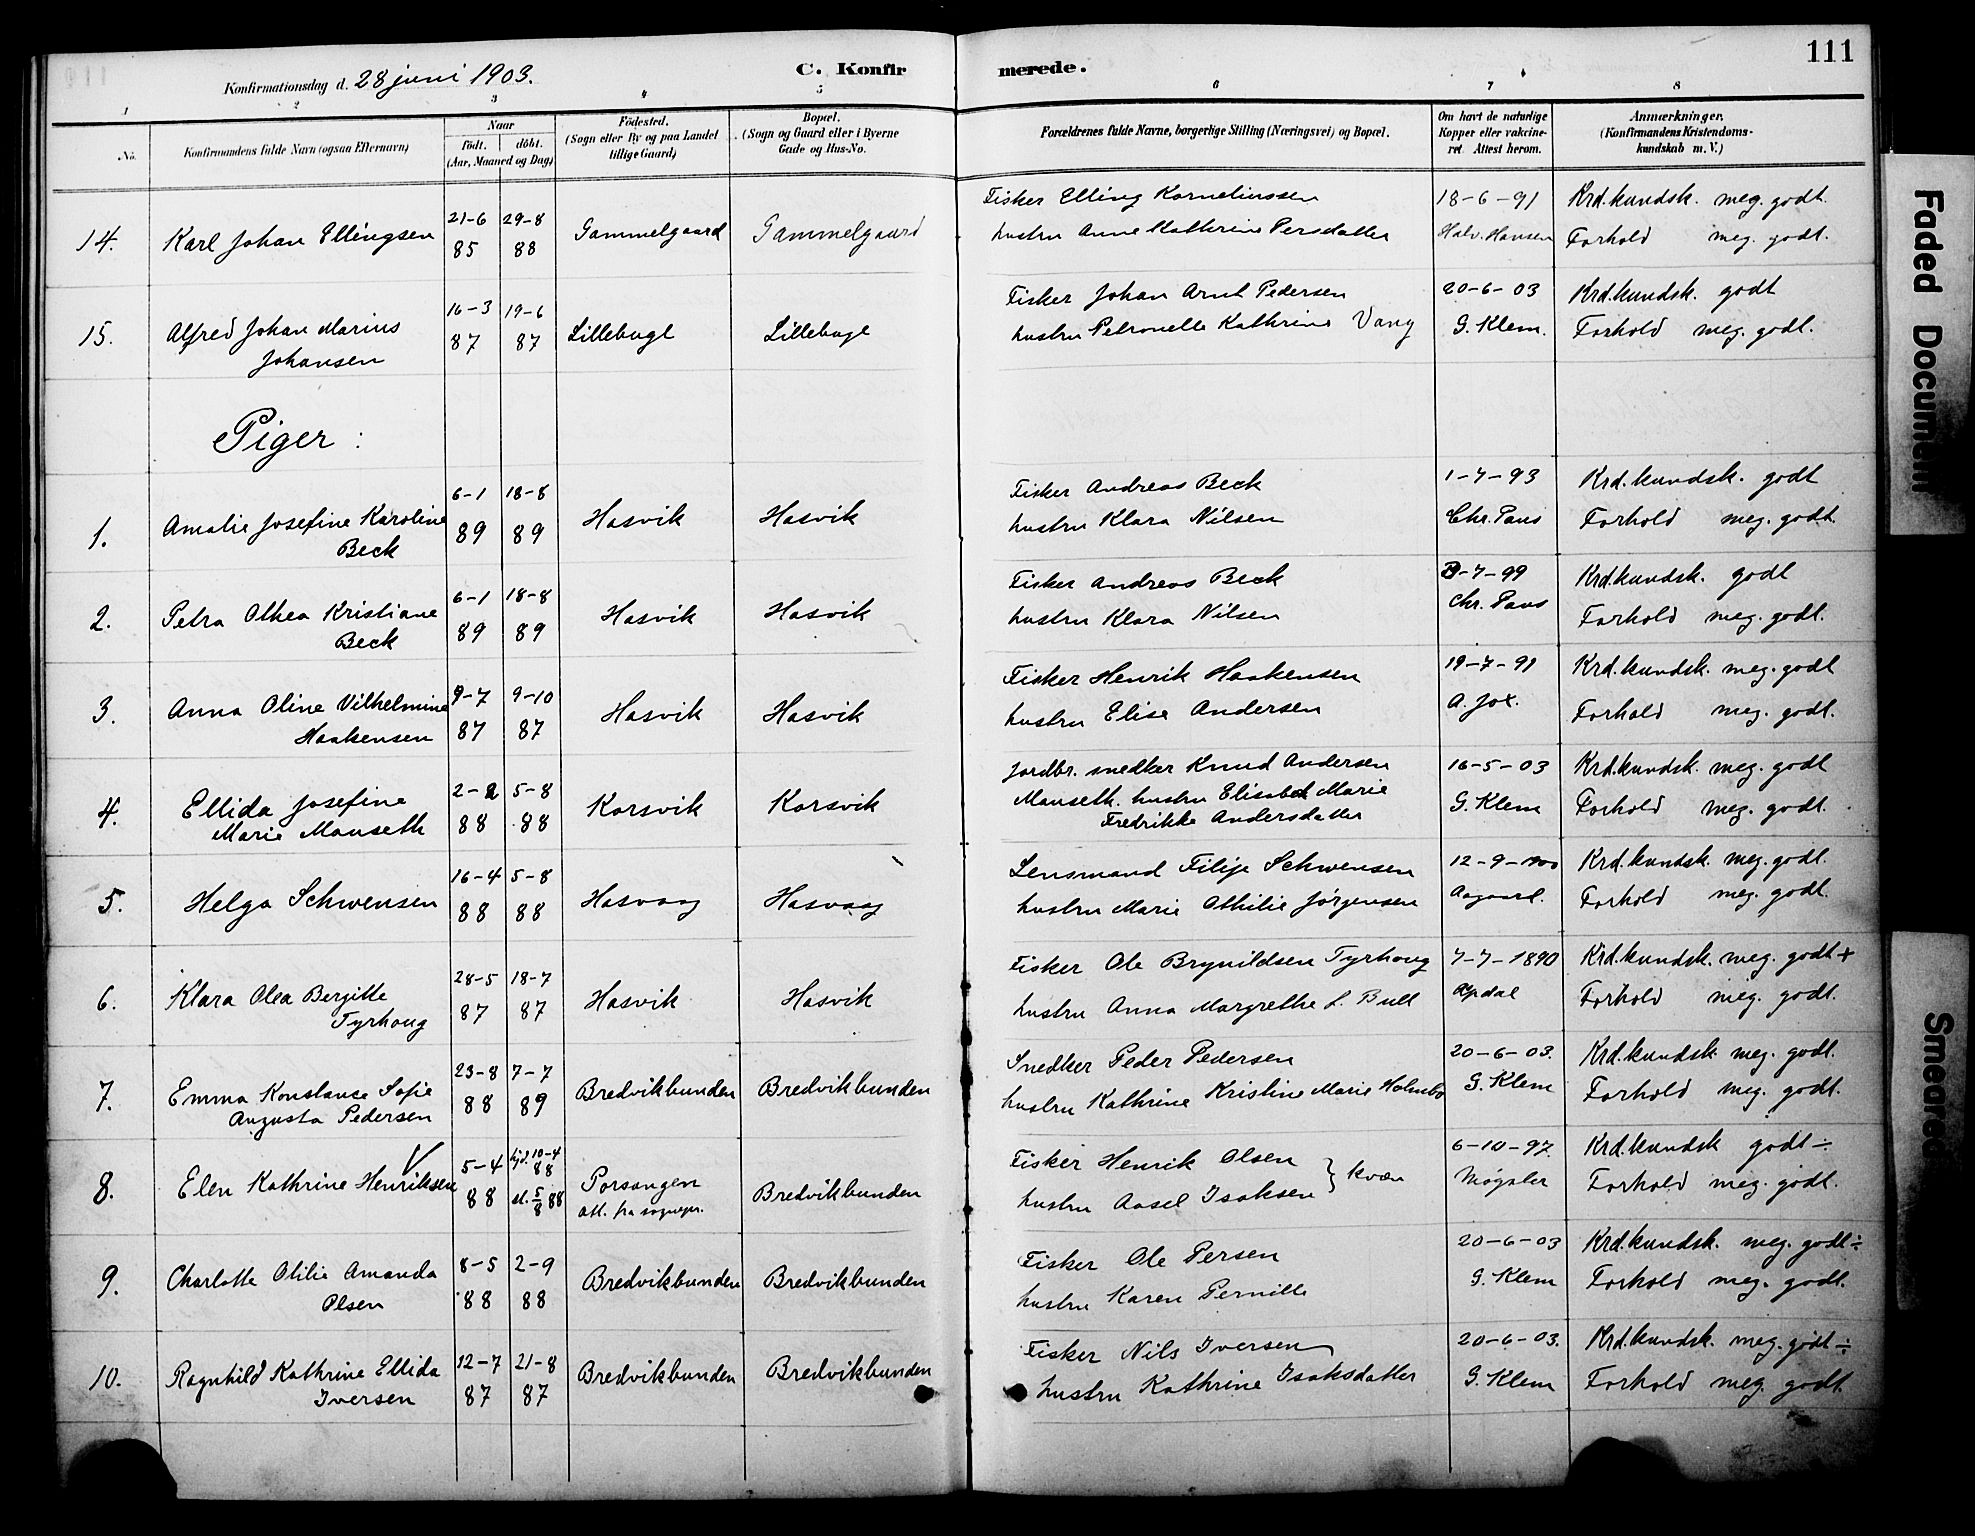 111
Konfirmationsdag d. 28 juni 1903.
C. Konfirmerede.
1 2 3 4 5 6 7 8
No.
Konfirmandens fulde Navn (ogsaa Efternavn)
Naar
født. døbt.
(Aar, Maaned og Dag)
Fødested.
(Sogn eller By og paa Landet
tillige Gaard)
Bopæl.
(Sogn og Gaard eller i Byerne
Gade og Hus-No.
Forældrenes fulde Navne, borgerlige Stilling (Næringsvei) og Bopæl.
Om havt de naturlige
Kopper eller vakcine-
ret. Attest herom.
Anmærkninger.
(Konfirmandens Kristendoms-
kundskab m. V.)
14. Karl Johan Ellingsen 21-6 85 29-8 88 Gammelgaard Gammelgaard
Fisker Elling Korneliussen 18-6-91 Krd.kundsk. meg. godt.
hustru Anne Kathrine Persdatter Halv. Hansen Forhold meg. godt.
15. Alfred Johan Marius
Johansen 16-3 87 19-6 87 Lillebugt Lillebugt
Fisker Johan Arnt Pedersen 20-6-03 Krd.kundsk. godt
hustru Petronelle Kathrine Vang G. Klem. Forhold meg. godt.
Piger:
1. Amalie Josefine Karoline
Beck 6-1 89 18-8 89 Hasvik Hasvik
Fisker Andreas Beck 1-7-93 Krd.kundsk. godt
hustru Klara Nilsen Chr. Paus Forhold meg. godt.
2. Petra Othea Kristiane
Beck 6-1 89 18-8 89 Hasvik Hasvik
Fisker Andreas Beck -7-99 Krd.kundsk. godt
hustru Klara Nilsen Chr. Paus Forhold meg. godt.
3. Anna Oline Vilhelmine
Haakensen 9-7 87 9-10 87 Hasvik Hasvik
Fisker Henrik Haakensen 19-7-91 Krd.kundsk. meg. godt
hustru Elise Andersen A. Fox. Forhold meg. godt.
4. Ellida Josefine
Marie Mauseth 2-2 88 5-8 88 Korsvik Korsvik
Jordbr. snedker Knud Andersen 16-5-03 Krd.kundsk. meg. godt
Mauseth. hustru Elisabet Marie G. Klem Forhold meg. godt.
Fredrikke Andersdatter
5. Helga Schwensen 16-4 88 5-8 88 Hasvaag Hasvaag
Lensmand Filip Schwensen 12-9-1900 Krd.kundsk. meg. godt.
hustru Marie Othilie Jørgensen Aagaard. Forhold meg. godt.
6. Klara Olea Bergitte
Tyrhoug 28-5 87 18-7 87 Hasvik Hasvik
Fisker Ole Brynildsen Tyrhoug 7-7-1890 Krd.kundsk. meg. godt+
hustru Anna Margrethe L. Bull Opdal Forhold meg. godt.
7. Emma Konstanse Sofie
Augusta Pedersen 23-8 88 7-7 89 Bredvikbunden Bredvikbunden
Snedker Peder Pedersen 20-6-03. Krd.kundsk. meg. godt.
hustru Kathrine Kristine Marie Holmbo G. Klem Forhold meg. godt.
8. Elen Kathrine Henriksen 5-4 88 hjd. 10-4 88 st. 5/8 88 Porsangen
Att. fra sognepr. Bredvikbunden
Fisker Henrik Olsen } kvæn 6-10-97. Krd.kundsk godt÷
hustru Aasel Isaksen Møgster Forhold meg. godt.
9. Charlotte Otilie Amanda
Olsen 8-5 88 2-9 88 Bredvikbunden Bredvikbunden
Fisker Ole Persen 20-6-03 Krd.kundsk. meg. godt÷
hustru Karen Pernille G. Klem Forhold meg. godt.
10. Ragnhild Kathrine Ellida
Iversen 12-7 87 21-8 87 Bredvikbunden Bredvikbunden
Fisker Nils Iversen 20-6-03. Krd.kundsk. meg. godt÷
hustru Kathrine Isaksdatter G. Klem Forhold meg. godt.
Faded Document
Smeared